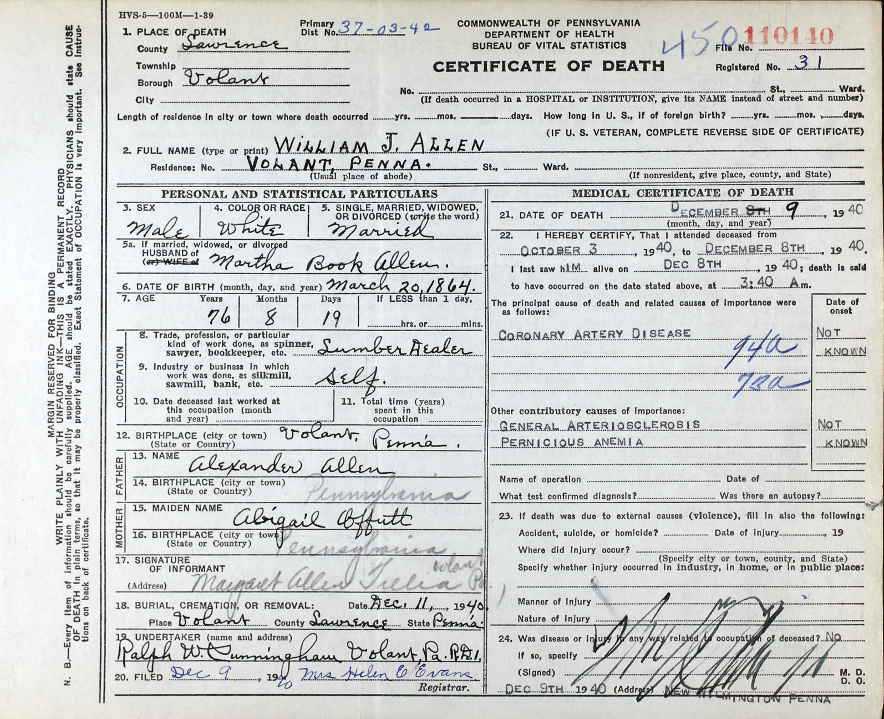 HVS-5—100M—1-39
Primary Dist No. 37-03-42
COMMONWEALTH OF PENNSYLVANIA
DEPARTMENT OF HEALTH
BUREAU OF VITAL STATISTICS
CERTIFICATE OF DEATH
450
File No. 110140
Registered No. 31
1. PLACE OF DEATH
County Lawrence
Township
Borough Volant
City
No. St., Ward.
(If death occurred in a HOSPITAL or INSTITUTION, give its NAME instead of street and number)
Length of residence in city or town where death occurred yrs. mos. days. How long in U. S., if of foreign birth? yrs. mos. days.
(IF U. S. VETERAN, COMPLETE REVERSE SIDE OF CERTIFICATE)
2. FULL NAME (type or print) WILLIAM J. ALLEN
Residence: No. VOLANT, PENNA. St., Ward.
(Usual place of abode) (If nonresident, give place, county, and State)
PERSONAL AND STATISTICAL PARTICULARS
3. SEX
Male
4. COLOR OR RACE
White
5. SINGLE, MARRIED, WIDOWED, OR DIVORCED (write the word)
Married
5a. If married, widowed, or divorced
HUSBAND of
(or) WIFE of Martha Book Allen.
6. DATE OF BIRTH (month, day, and year) March 20, 1864.
7. AGE Years Months Days If LESS than 1 day,
76 8 19 hrs. or mins.
OCCUPATION
8. Trade, profession, or particular
kind of work done, as spinner,
sawyer, bookkeeper, etc. Lumber Dealer
9. Industry or business in which
work was done, as silkmill,
sawmill, bank, etc. Self.
10. Date deceased last worked at
this occupation (month
and year)
11. Total time (years)
spent in this
occupation
12. BIRTHPLACE (city or town) Volant,
(State or Country) Penn'a.
FATHER
13. NAME
Alexander Allen
14. BIRTHPLACE (city or town)
(State or Country) Pennsylvania
MOTHER
15. MAIDEN NAME
Abigail Offutt
16. BIRTHPLACE (city or town)
(State or Country) Pennsylvania
17. SIGNATURE
OF INFORMANT
(Address) Margaret Allen Volant Pa.
18. BURIAL, CREMATION, OR REMOVAL: Date Dec. 11, 1940
Place Volant County Lawrence State Penn'a.
19. UNDERTAKER (name and address)
Ralph W. Cunningham Volant, Pa. R.D.1.
20. FILED Dec 9 1940 Mrs Helen E Evans
Registrar.
MEDICAL CERTIFICATE OF DEATH
21. DATE OF DEATH DECEMBER 8TH 9, 1940
(month, day, and year)
22. I HEREBY CERTIFY, That I attended deceased from
OCTOBER 3, 1940, to DECEMBER 8TH 1940.
I last saw hIM alive on DEC 8TH, 1940; death is said
to have occurred on the date stated above, at 3:40 Am.
The principal cause of death and related causes of importance were
as follows:
Date of onset
CORONARY ARTERY DISEASE NOT
94a KNOWN
72a
Other contributory causes of importance:
GENERAL ARTERIOSCLEROSIS NOT
PERNICIOUS ANEMIA KNOWN
Name of operation Date of
What test confirmed diagnosis? Was there an autopsy?
23. If death was due to external causes (violence), fill in also the following:
Accident, suicide, or homicide? Date of injury, 19
Where did injury occur?
(Specify city or town, county, and State)
Specify whether injury occurred in industry, in home, or in public place:
Manner of Injury
Nature of Injury
24. Was disease or injury in any way related to occupation of deceased? No
If so, specify
(Signed) M. D.
D. O.
DEC 9TH 1940 (Address) NEW WILMINGTON PENNA
MARGIN RESERVED FOR BINDING
WRITE PLAINLY WITH UNFADING INK—THIS IS A PERMANENT RECORD
N. B.—Every item of information should be carefully supplied. AGE should be stated EXACTLY. PHYSICIANS should state CAUSE
OF DEATH in plain terms, so that it may be properly classified. Exact Statement of OCCUPATION is very important. See instruc-
tions on back of certificate.